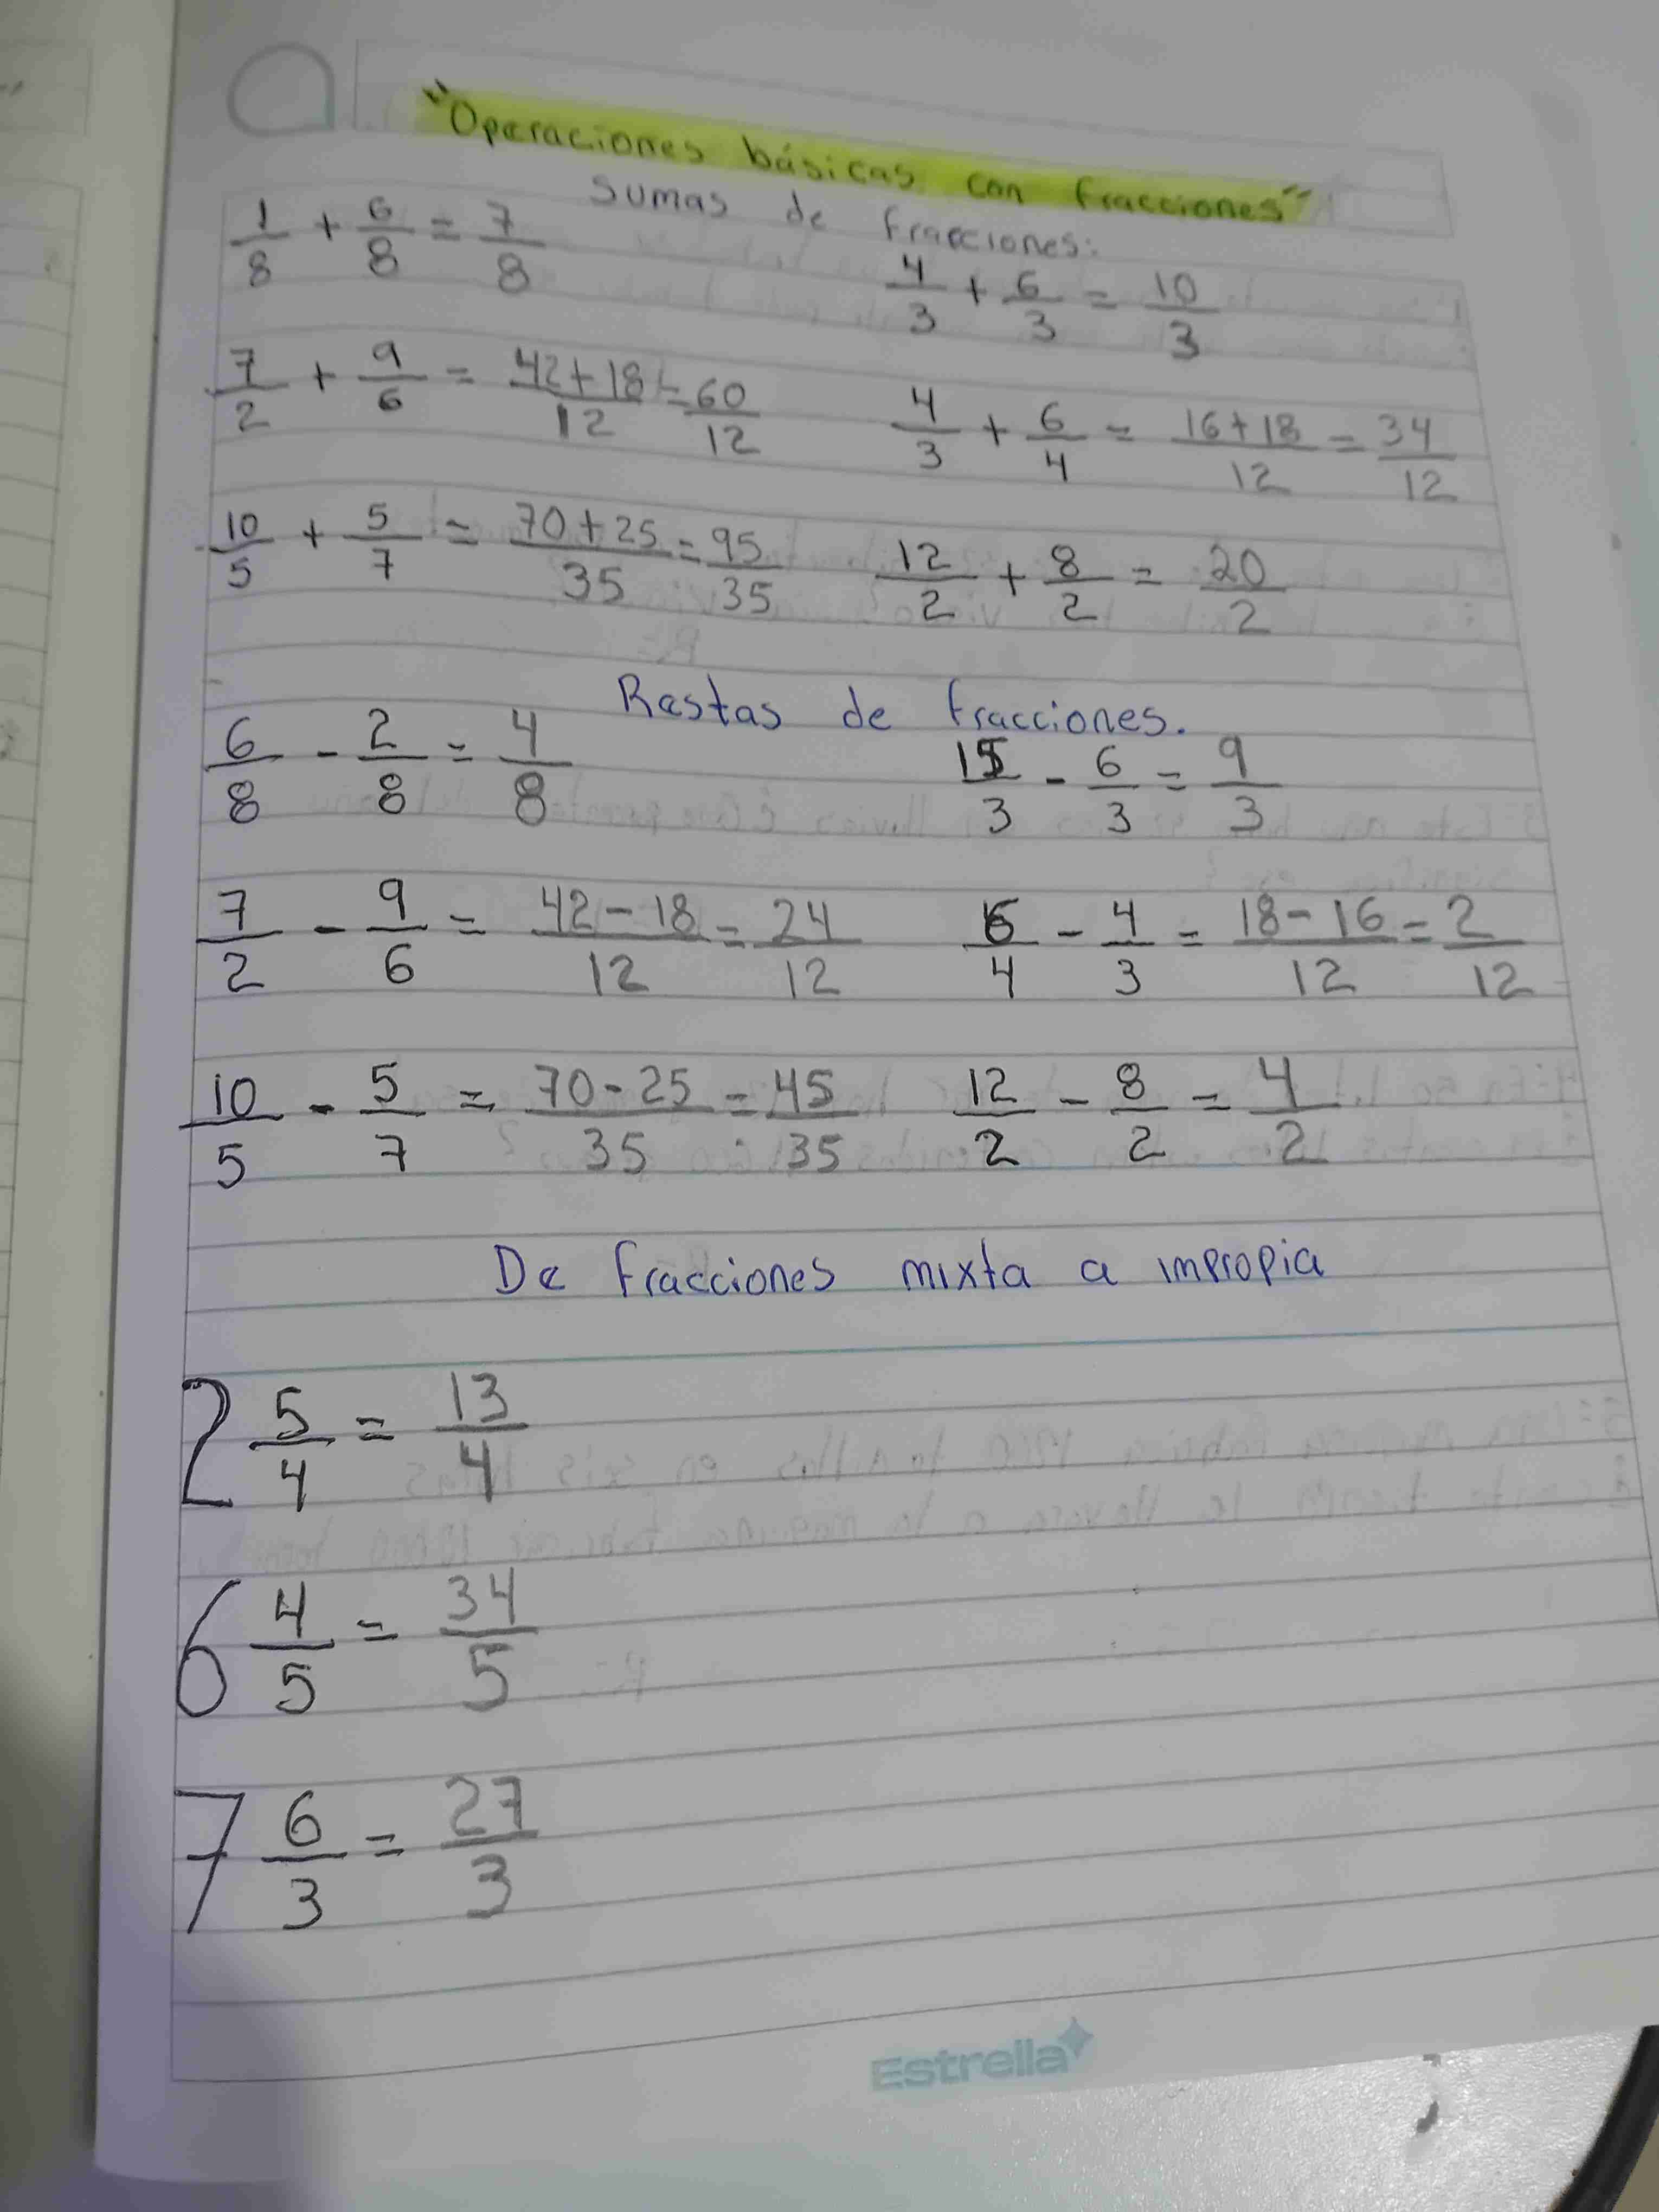 "Operaciones básicas con fracciones"
Sumas de fracciones:
1/8 + 6/8 = 7/8    4/3 + 6/3 = 10/3
7/2 + 9/6 = 42+18/12 = 60/12    4/3 + 6/4 = 16+18/12 = 34/12
10/5 + 5/7 = 70+25/35 = 95/35    12/2 + 8/2 = 20/2
Restas de fracciones.
6/8 - 2/8 = 4/8    15/3 - 6/3 = 9/3
7/2 - 9/6 = 42-18/12 = 24/12    6/4 - 4/3 = 18-16/12 = 2/12
10/5 - 5/7 = 70-25/35 = 45/35    12/2 - 8/2 = 4/2
De fracciones mixta a impropia
2 5/4 = 13/4
6 4/5 = 34/5
7 6/3 = 27/3
Estrella